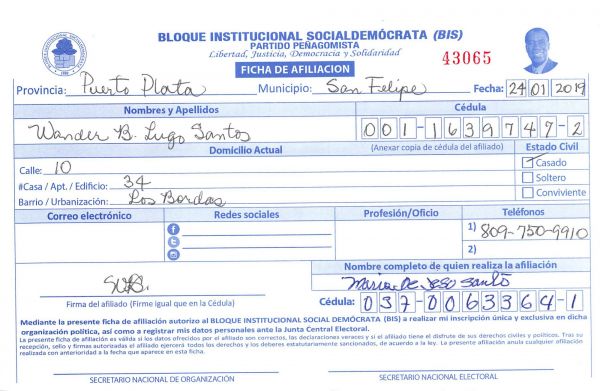 BLOQUE INSTITUCIONAL SOCIALDEMÓCRATA (BIS)
PARTIDO PEÑAGOMISTA
Libertad, Justicia, Democracia y Solidaridad
43065
FICHA DE AFILIACION
Provincia: Puerto Plata Municipio: San Felipe Fecha: 24 01 2019
Nombres y Apellidos Cédula
Wander B. Lugo Santos 001-1639747-2
Domicilio Actual (Anexar copia de cédula del afiliado) Estado Civil
Calle: 10 Casado
#Casa / Apt. / Edificio: 34 Soltero
Barrio / Urbanización: Los Bordas Conviviente
Correo electrónico Redes sociales Profesión/Oficio Teléfonos
1) 809-750-9910
2)
Nombre completo de quien realiza la afiliación
Maria De Jeso Santo
Firma del afiliado (Firme igual que en la Cédula) Cédula: 037-0063364-1
Mediante la presente ficha de afiliación autorizo al BLOQUE INSTITUCIONAL SOCIAL DEMÓCRATA (BIS) a realizar mi inscripción única y exclusiva en dicha
organización política, así como a registrar mis datos personales ante la Junta Central Electoral.
La presente ficha de afiliación es válida si los datos ofrecidos por el afiliado son correctos, las declaraciones veraces y si el afiliado tiene el disfrute de sus derechos civiles y políticos. Tras su
recepción, sello y firmas autorizadas el afiliado ejercerá todos los derechos y los deberes estatutariamente sancionados, de acuerdo a la ley. La presente afiliación anula cualquier afiliación
realizada con anterioridad a la fecha que aparece en esta ficha.
SECRETARIO NACIONAL DE ORGANIZACIÓN SECRETARIO NACIONAL ELECTORAL